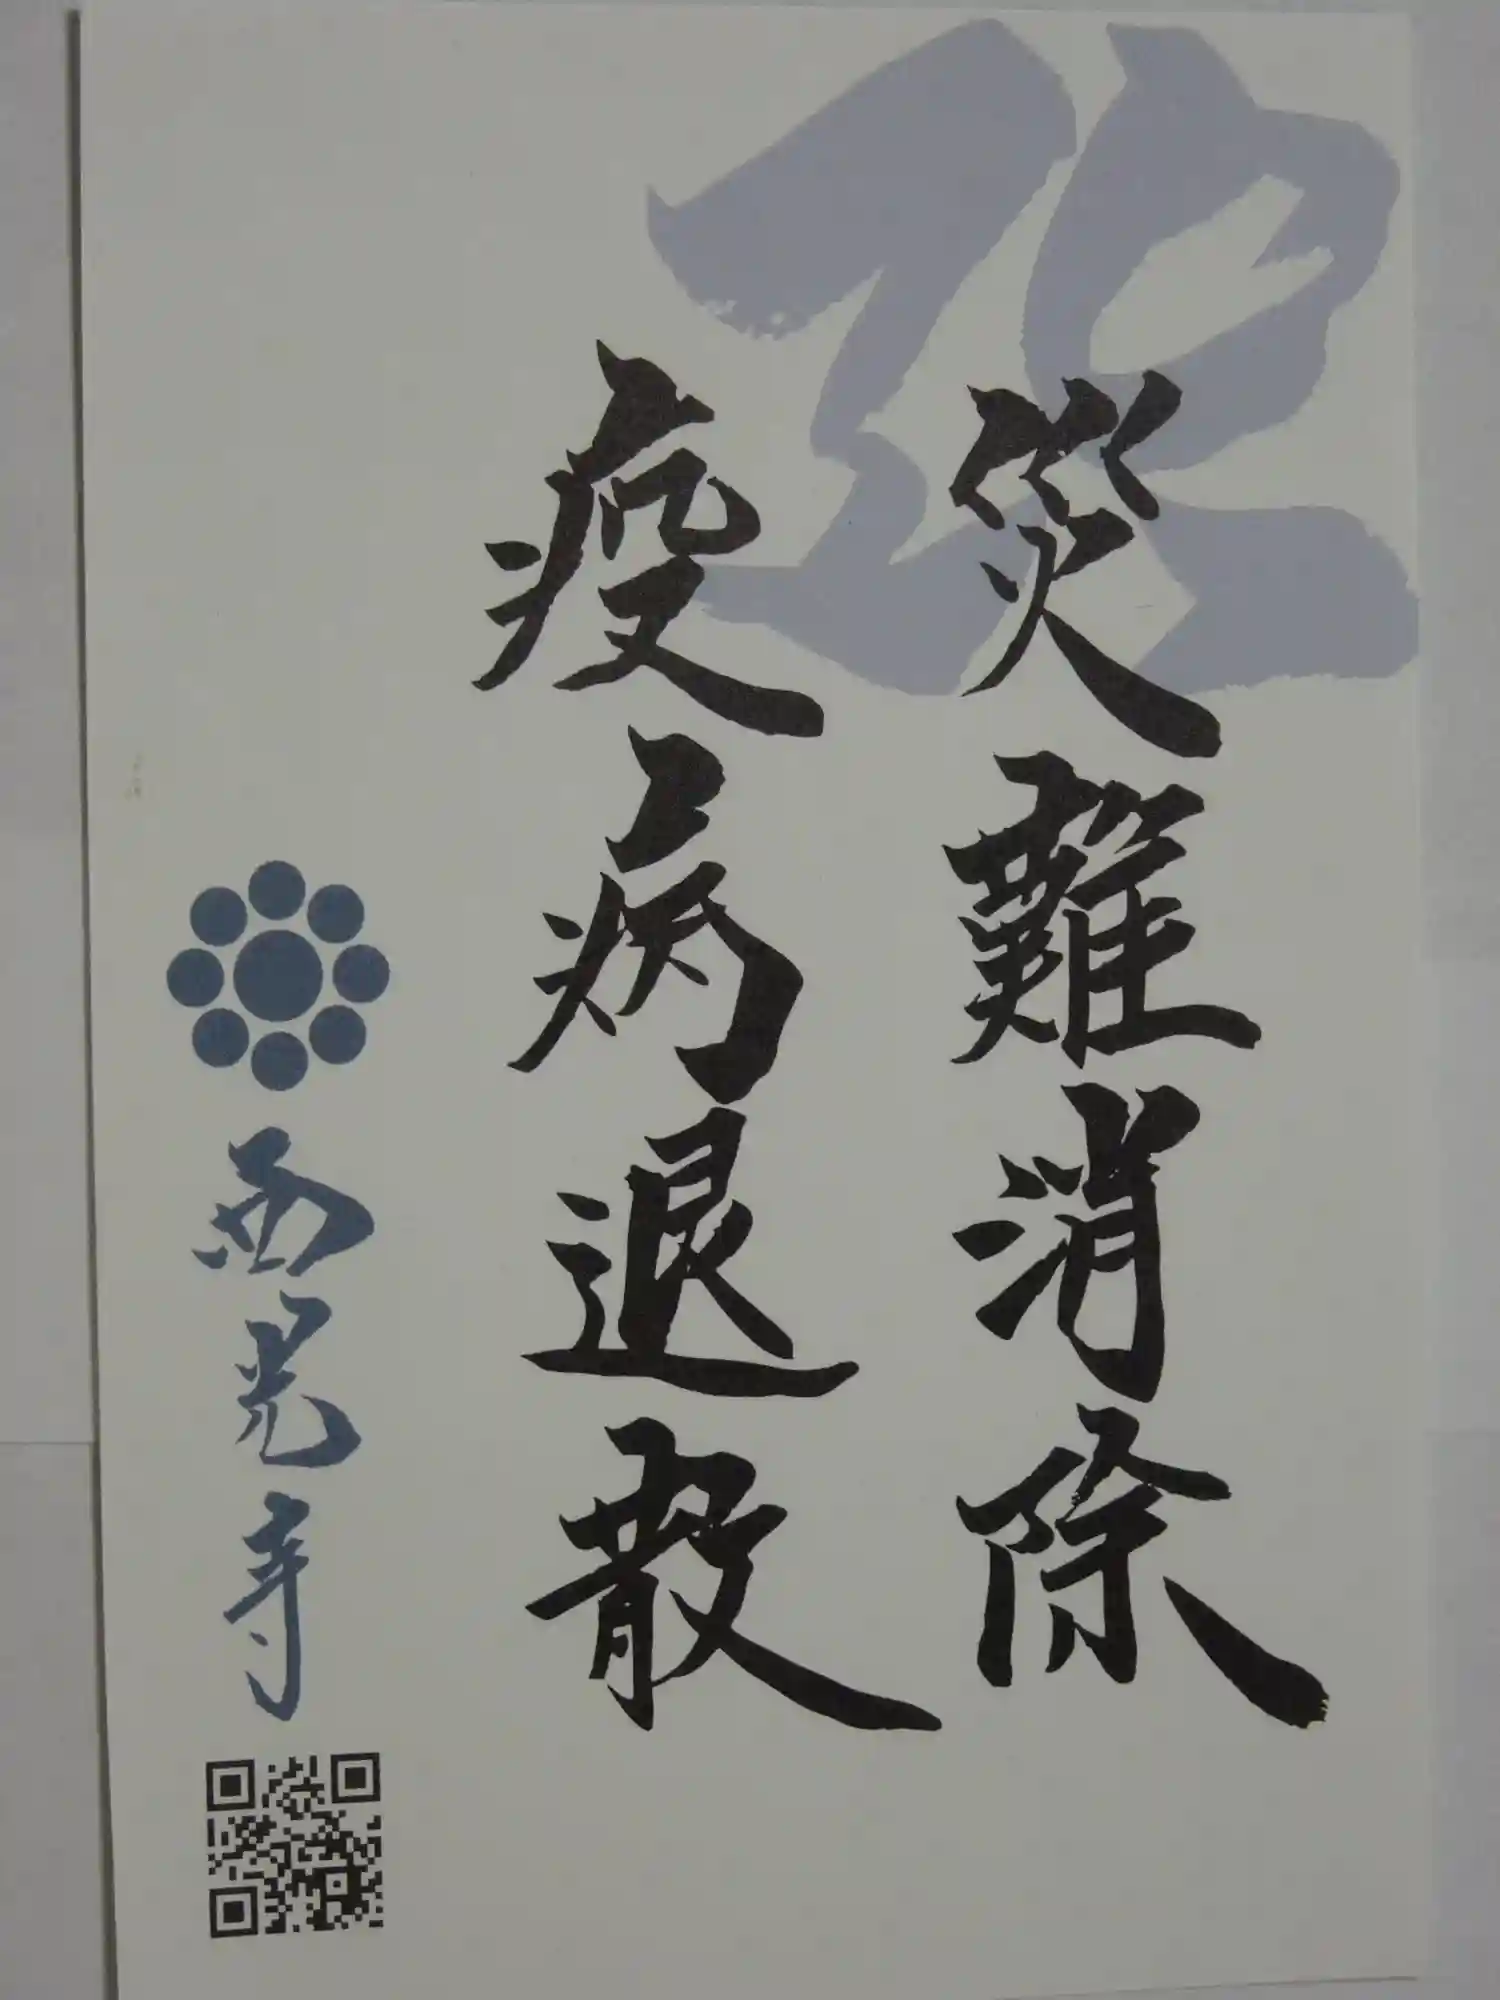 災難消除
疫病退散
西光寺